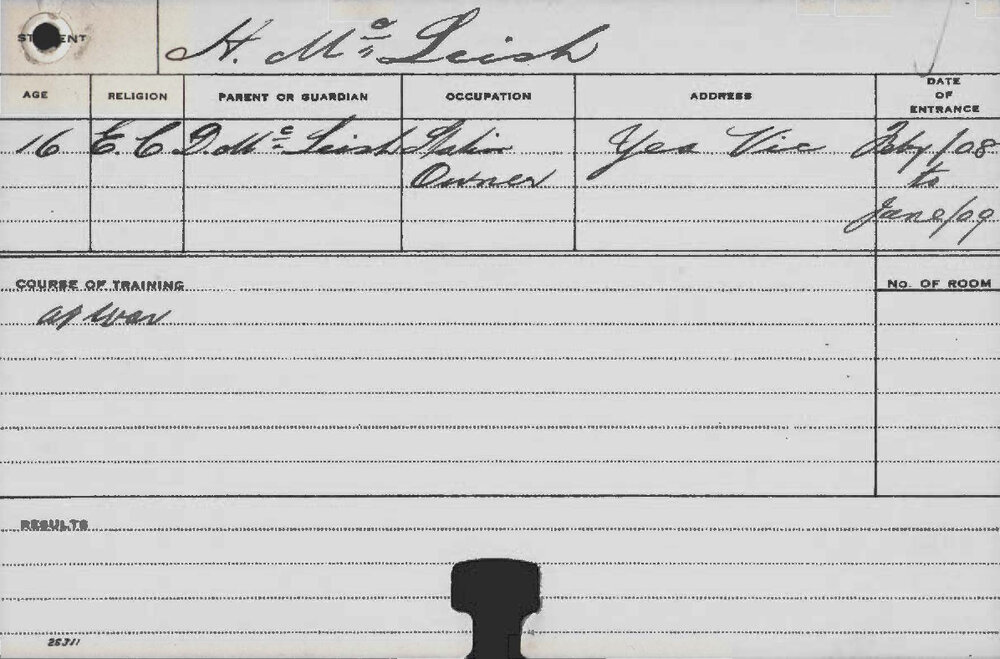 STUDENT H. McLeish
AGE RELIGION PARENT OR GUARDIAN OCCUPATION ADDRESS DATE OF ENTRANCE
16 E.C D. McLeish Station Yea Vic Feby/08
Owner to
June/09
COURSE OF TRAINING No. OF ROOM
RESULTS
25311